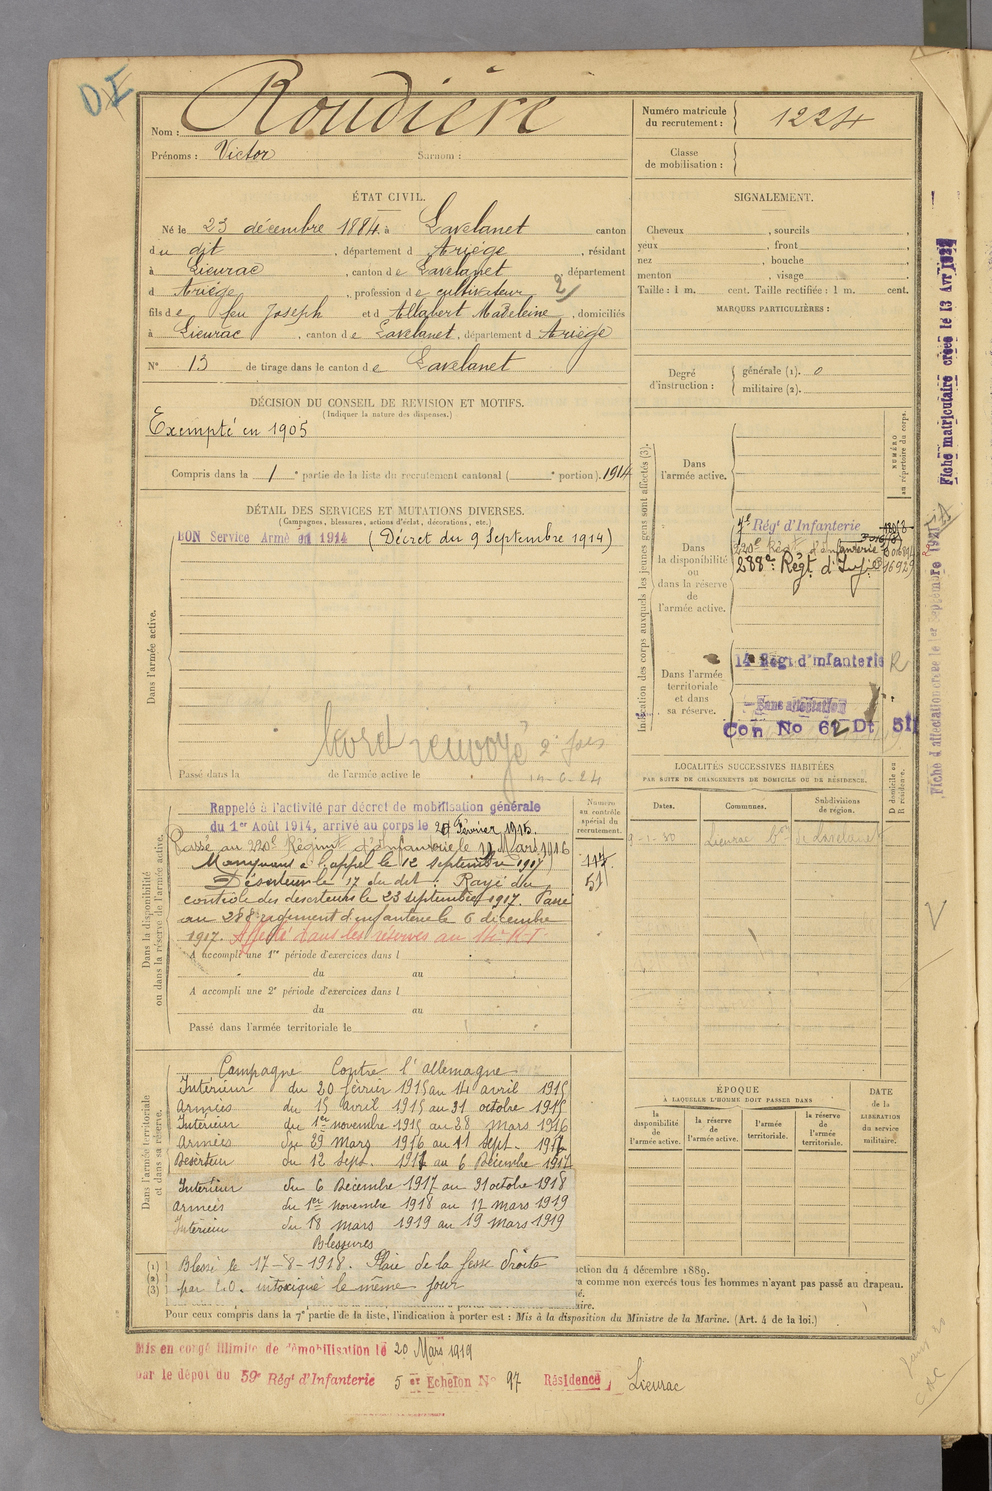 D
Nom : Roudière
Prénoms : Victor Surnom :
Numéro matricule du recrutement : 1224
Classe de mobilisation :
ÉTAT CIVIL.
Né le 23 décembre 1884, à Lavelanet canton
du dit, département d Ariège, résidant
à Lieurac, canton de Lavelanet, département
d Ariège, profession de cultivateur 2/
fils de feu Joseph et d Allabert Madeleine, domiciliés
à Lieurac, canton de Lavelanet, département d Ariège
N° 13 de tirage dans le canton de Lavelanet
SIGNALEMENT.
Cheveux , sourcils ,
yeux , front ,
nez , bouche ,
menton , visage
Taille : 1 m. cent. Taille rectifiée : 1 m. cent.
MARQUES PARTICULIÈRES :
Degré d'instruction : générale (1). 0
militaire (2).
DÉCISION DU CONSEIL DE REVISION ET MOTIFS.
(Indiquer la nature des dispenses.)
Exempté en 1905
Compris dans la 1 e partie de la liste du recrutement cantonal ( e portion). 1914
DÉTAIL DES SERVICES ET MUTATIONS DIVERSES.
(Campagnes, blessures, actions d'éclat, décorations, etc.)
BON Service Armé en 1914 (Décret du 9 Septembre 1914)
Dans l'armée active.
renvoyé 2 fois
Passé dans la de l'armée active le
Indication des corps auxquels les jeunes gens sont affectés (3).
NUMÉRO au répertoire du corps.
Dans l'armée active.
Dans la disponibilité ou dans la réserve de l'armée active.
Régt d'Infanterie
220e Régt d'Infanterie
288e Régt d'Inf 16929
Dans l'armée territoriale et dans sa réserve.
14 Régt d'Infanterie R
Sans affectation
Con No 62 Dt 511
Fiche matriculaire créée le 13 Avr
Fiche d'affectation créée le 1er Septembre 1927
LOCALITÉS SUCCESSIVES HABITÉES
PAR SUITE DE CHANGEMENTS DE DOMICILE OU DE RÉSIDENCE.
Dates. Communes. Subdivisions de région. D domicile ou R résidence.
Lieurac de Lavelanet
Dans la disponibilité ou dans la réserve de l'armée active.
Numéro au contrôle spécial du recrutement.
Rappelé à l'activité par décret de mobilisation générale
du 1er Août 1914, arrivé au corps le 20 Février 1915.
Passé au 220e Régiment d'Infanterie le 11 Mars 1916
Manquant à l'appel le 12 septembre 1917
Déserteur le 17 du dit. Rayé du
51
contrôle des déserteurs le 23 septembre 1917. Passé
au 288e régiment d'infanterie le 6 décembre
1917. Affecté dans les réserves au 14e R.I.
A accompli une 1re période d'exercices dans l
du au
A accompli une 2e période d'exercices dans l
du au
Passé dans l'armée territoriale le
Dans l'armée territoriale et dans sa réserve.
Campagne Contre l'allemagne
Intérieur du 20 février 1915 au 14 avril 1915
Armées du 15 avril 1915 au 31 octobre 1915
Intérieur du 1er novembre 1915 au 28 mars 1916
Armées du 29 mars 1916 au 11 sept. 1917
Déserteur du 12 sept. 1917 au 6 Décembre 1917
Intérieur du 6 Décembre 1917 au 31 octobre 1918
Armées du 1er novembre 1918 au 17 mars 1919
Intérieur du 18 mars 1919 au 19 mars 1919
Blessures
Blessé le 17-8-1918. Plaie de la fesse droite
par E.O. intoxiqué le même jour
ÉPOQUE
À LAQUELLE L'HOMME DOIT PASSER DANS
la disponibilité de l'armée active. la réserve de l'armée active. l'armée territoriale. la réserve de l'armée territoriale.
DATE de la LIBÉRATION du service militaire.
(1)
(2)
(3)
ction du 4 décembre 1889.
a comme non exercés tous les hommes n'ayant pas passé au drapeau.
Pour ceux compris dans la 7e partie de la liste, l'indication à porter est : Mis à la disposition du Ministre de la Marine. (Art. 4 de la loi.)
Mis en congé illimité de démobilisation le 20 Mars 1919
par le dépôt du 59e Régt d'Infanterie 5 er Echelon N° 97 Résidence Lieurac